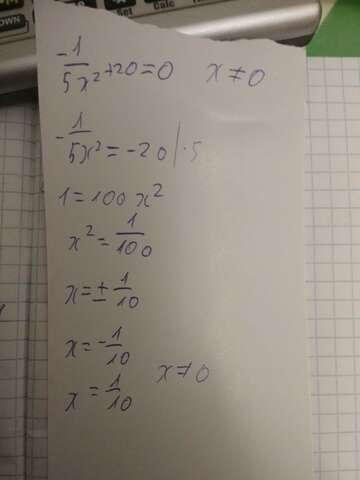 OWN
Set
Calc
-1/5x²+20=0 x≠0
-1/5x²=-20|·5
1=100x²
x²=1/100
x=±1/10
x=-1/10
x=1/10 x≠0